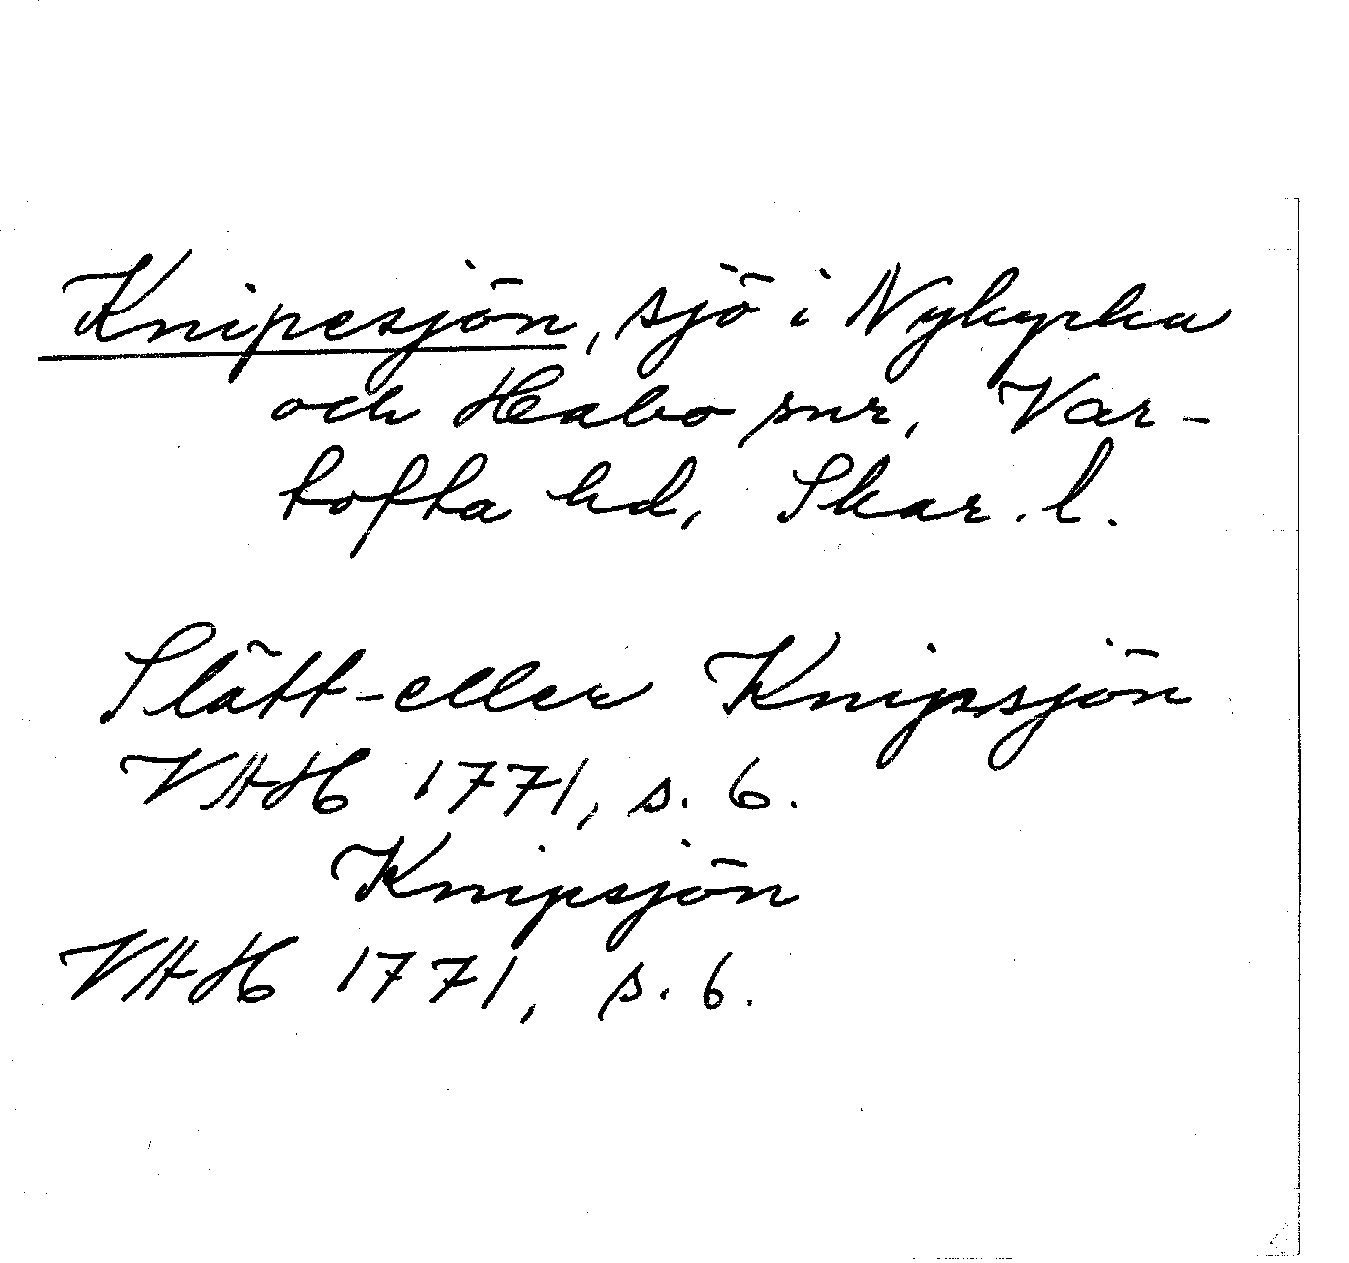 Knipesjön, sjö i Nykyrka
och Habo snr, Var-
tofta hd, Skar. l.
Slätt- eller Knipsjön
VAH 1771, s. 6.
Knipsjön
VAH 1771, s. 6.